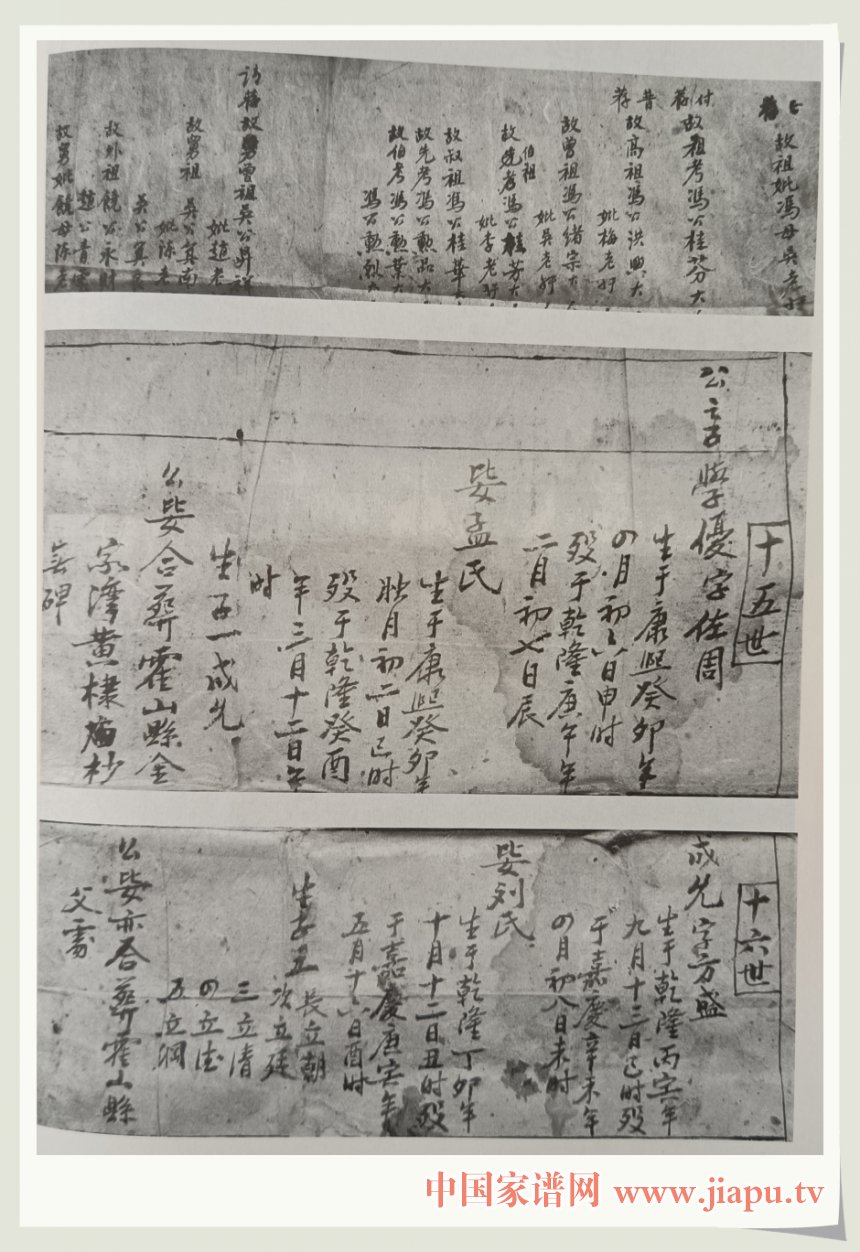 故祖妣馮母吳老孺
付
故祖考馮公桂芬大人
昔
故高祖馮公洪興大
妣梅老孺
故曾祖馮公緒宗大人
妣吳老孺
伯祖
故先考馮公桂芳大
妣李老孺
故叔祖馮公桂華
故先考馮公勲品大
故伯考馮公勲葉大
馮公勲猷大
故男曾祖吳公昇祥
妣趙老
故男祖 吳公其南
妣陳老
吳公其
故外祖饒公永財
趙公青雲
故男妣饒母陳老
十五世
公立言學優字佐周
生于康熙癸卯年
四月初八日申时
殁于乾隆庚午年
二月初七日辰
娶孟氏
生于康熙癸卯年
月初二日巳时
殁于乾隆癸酉
年三月十二日午
时
生子一成先
公娶合葬霍山縣金
家湾黄棣庙杪
芸碑
十六世
成先字方盛
生于乾隆丙寅年
九月十三日巳时殁
于嘉慶辛未年
四月初八日未时
娶刘氏
生于乾隆丁卯年
十月十二日丑时殁
于嘉慶庚寅年
五月十六日酉时
生子五 長立朝
次立廷
三立清
四立法
五立綱
公娶亦合葬霍山縣
父處
中国家谱网 www.jiapu.tv